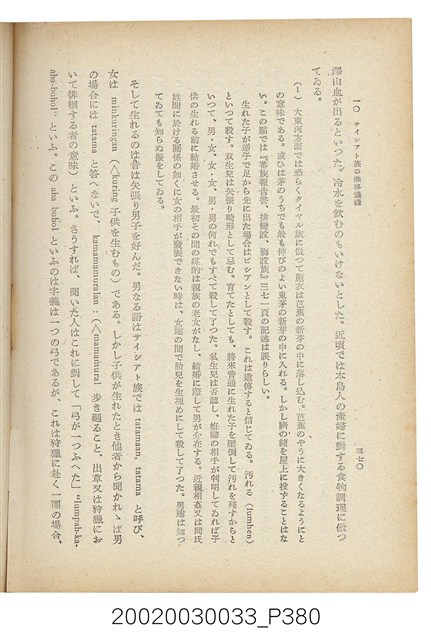 一〇 サイシアト族の推移儀禮
三七〇
澤山血が出るといつた。冷水を飲むのもいけないとした。近頃では本島人の產婦に對する食物調理に倣つ
てゐる。
(1) 大東河方面では恐らくタイヤル族に倣つて胞衣は芭蕉の新芽の中に落し込む。芭蕉のやうに大きくなるようにと
の意味である。或ひは茅のうちでも最も伸びのよい鬼茅の新芽の中に入れる。しかし臍の緒を屋上に投ずることはな
い。この篇では『蕃族報告書、排彎族、獅設族』三七一頁の記述は誤りらしい。
生れた子が逆子で足から先に出た場合はビシアンとして殺す。これは遺傳すると信じてゐる。汚れる(lumhen)
といつて殺す。双生兒は矢張り畸形として忌む。育てたとしても、將來普通に生れた子を壓倒して汚れを殘すからと
いつて、男・女、女・女、男・男の何れでもすべて殺して了つた。私生兒は否認し、姙婦の相手が判明してゐれば子
供の生れる前に結婚させる。最初その間の媒酌は親族の老女がなし、結婚に際して男が介在する。近親相姦又は同氏
姓間に於ける關係の如くに女の相手が發表できない時は、女達の間で胎兒を生埋めにして殺して了つた。男達は知つ
てゐても知らぬ振をしてゐる。
そして生れるのは昔は矢張り男子を好んだ。男なる語はサイシアト族では tatamaan, tatama と呼び、
女は minkoringan (∧huring 子供を生むもの)である。しかし子供が生れたとき他者から聞かれゝば男
の場合には tatama と答へないで、kamamamuralan:(∧mamamural 步き廻ること、出草又は狩獵にお
いて徘徊する者の意味)といふ。さうすれば、聞いた人はこれに對して『弓が一つふへた』“lampah-ka-
aha-buhol” といふ。この aha buhol といふのは字義は一つの弓であるが、これは狩獵に赴く一團の場合、
20020030033_P380